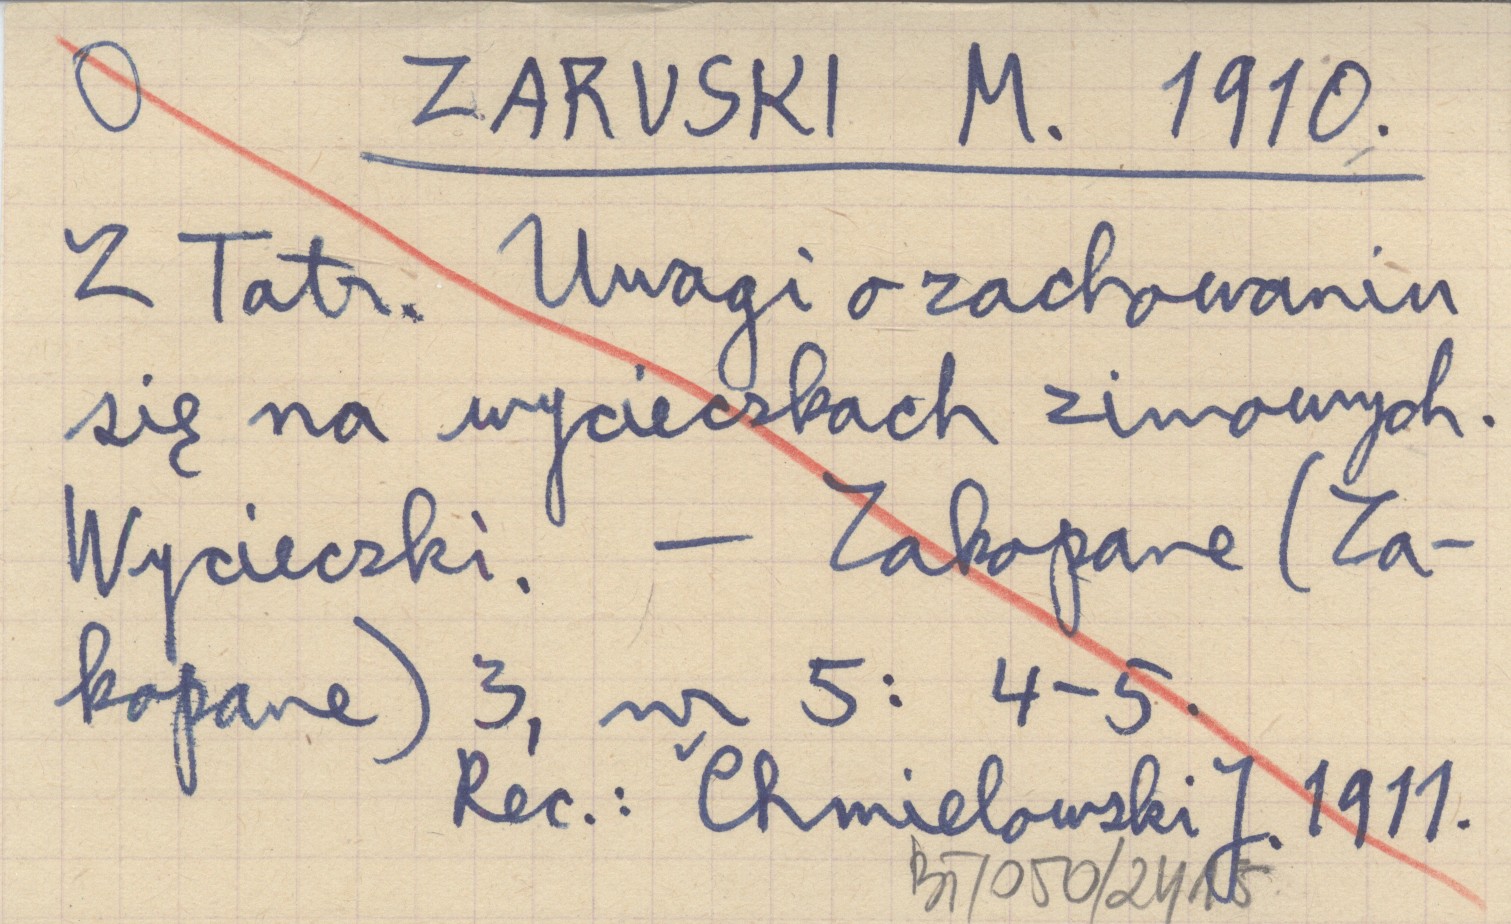 O ZARUSKI M. 1910.
Z Tatr. Uwagi o zachowaniu
się na wycieczkach zimowych.
Wycieczki. — Zakopane (Za-
kopane) 3, nr 5: 4-5.
Rec.: Chmielowski J. 1911.
BT/050/2415